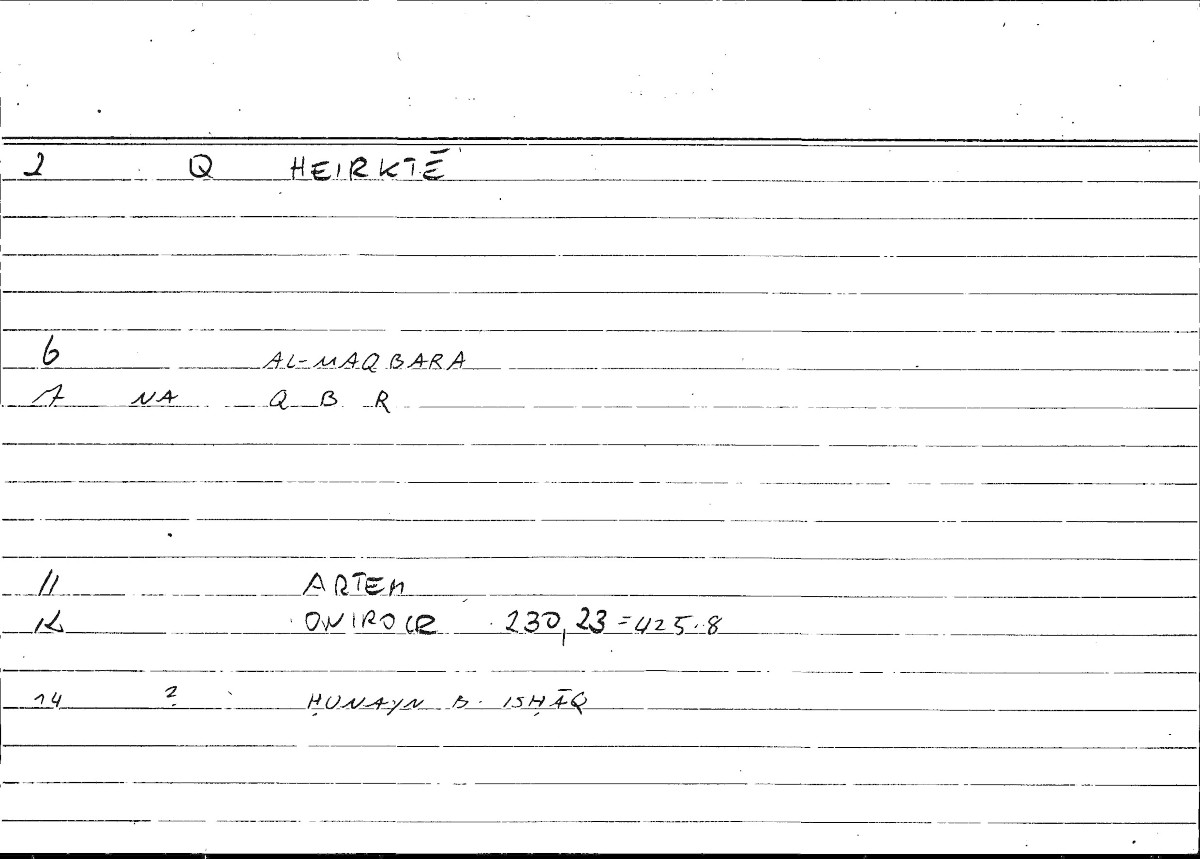 2 Q HEIRKTĒ
6 AL-MAQBARA
7 NA Q B R
11 ARTEM
12 ONIROCR 230,23=425.8
14 2 ḤUNAYN B. ISḤĀQ